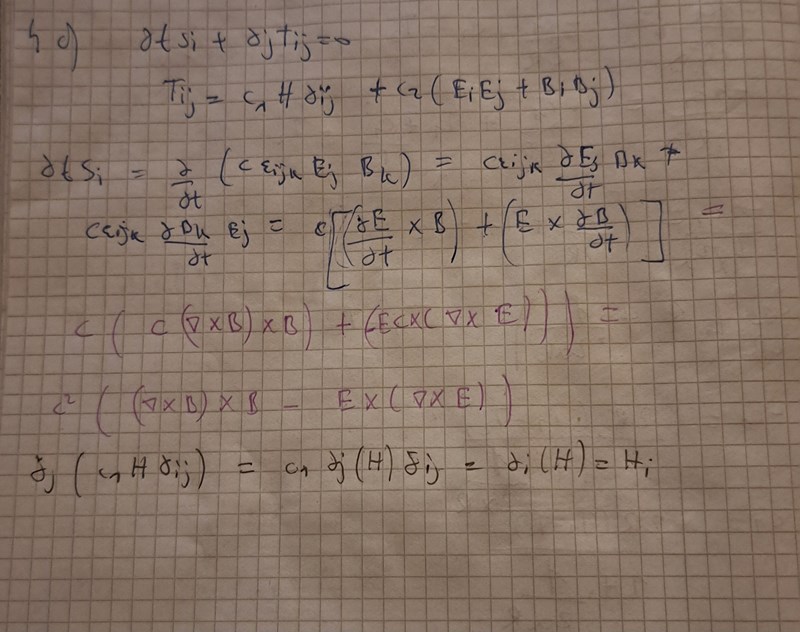 4 d) ∂t Si + ∂j Tij = 0
Tij = c₁ H δij + c₂ ( Ei Ej + Bi Bj )
∂t Si = ∂/∂t ( c εijk Ej Bk ) = c εijk ∂Ej/∂t Bk +
c εijk ∂Bk/∂t Ej = c [ ( ∂E/∂t × B ) + ( E × ∂B/∂t ) ] =
c ( c (∇×B) × B ) + ( E c × ( ∇ × E ) ) ) =
c² ( (∇×B) × B − E × ( ∇ × E ) )
∂j ( c₁ H δij ) = c₁ ∂j (H) δij = ∂i (H) = Hi